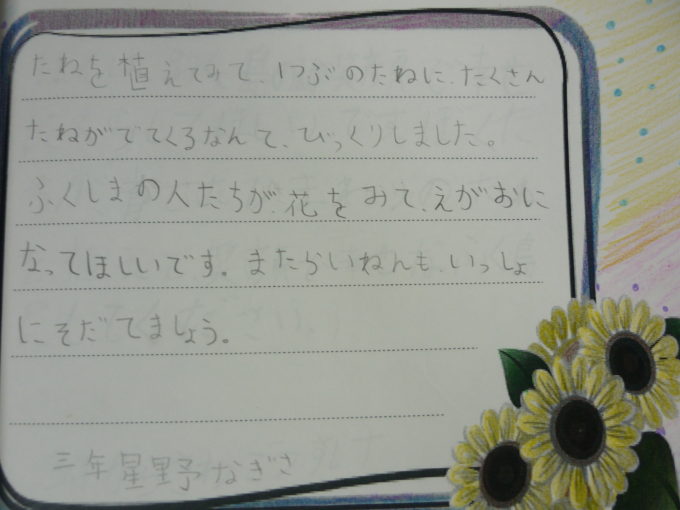 たねを植えてみて、1つぶのたねに、たくさん
たねがでてくるなんて、びっくりしました。
ふくしまの人たちが、花をみて、えがおに
なってほしいです。またらいねんも、いっしょ
にそだてましょう。
三年星野なぎさ